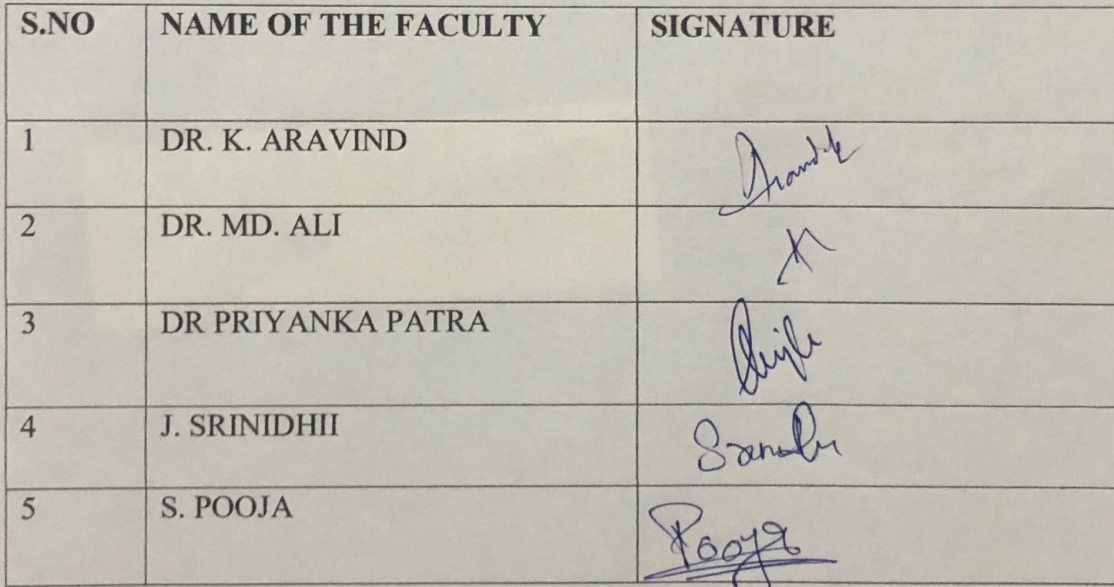 S.NO NAME OF THE FACULTY SIGNATURE
1 DR. K. ARAVIND
2 DR. MD. ALI
3 DR PRIYANKA PATRA
4 J. SRINIDHII
5 S. POOJA Pooja